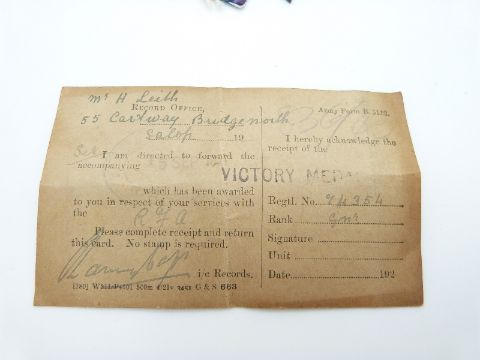 Mr H Leith
RECORD OFFICE,
55 Cartway Bridgenorth
Salop 19
I am directed to forward the
accompanying
VICTORY MEDAL
which has been awarded
to you in respect of your services with
the R.F.A
Please complete receipt and return
this card. No stamp is required.
i/c Records.
G & S 663
Army Form B. 5182.
I hereby acknowledge the
receipt of the
Regtl. No. 74354
Rank Gnr
Signature
Unit
Date 192